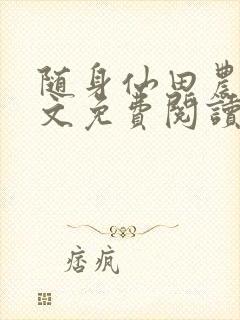 随身仙田農
文免費閱讀
痞疯